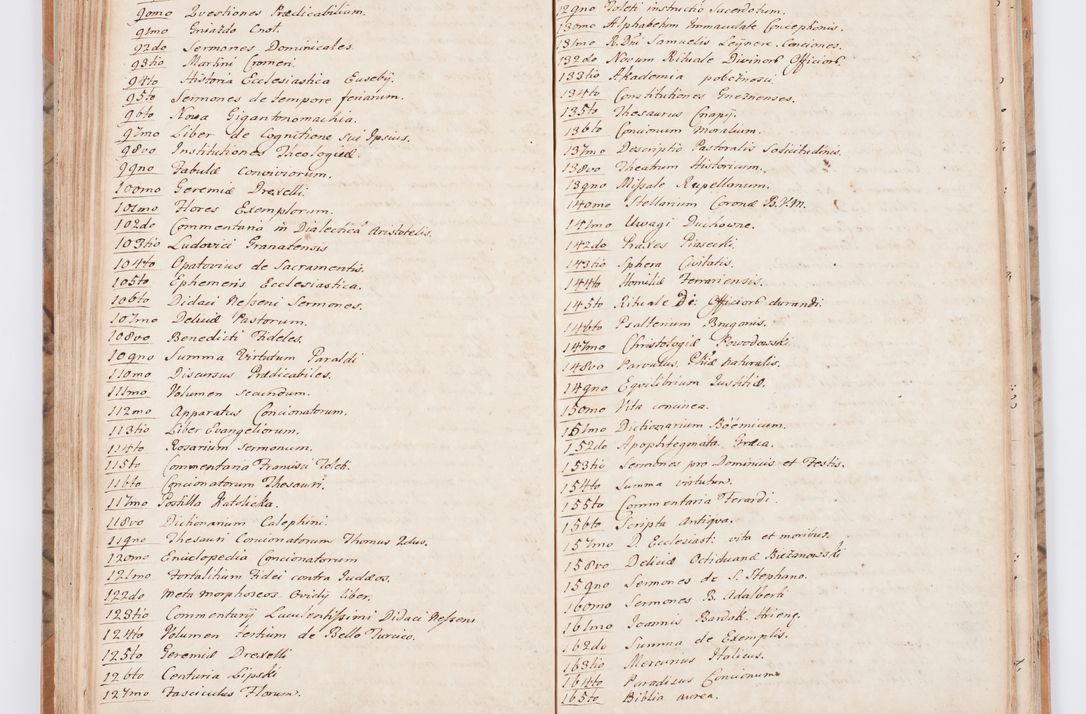 90mo Questiones Prædicabilium.
91mo Gniazdo Cnot.
92do Sermones Dominicales.
93tio Martini Cromeri.
94to Historia Ecclesiastica Eusebij.
95to Sermones de tempore feriarum.
96to Nowa Gigantonomachia.
97mo Liber de Cognitione sui Ipsius.
98vo Institutiones Theologiæ.
99no Fabulæ Conviviorum.
100mo Geremiæ Drexelli
101mo Flores Exemplorum.
102do Commentario in Dialectica Aristotelis.
103tio Ludovici Granatensis
104to Opatovius de Sacramentis.
105to Ephemeris Ecclesiastica.
106to Didaci Nesseni Sermones.
107mo Deliciæ Pastorum.
108vo Benedicti Fideles.
109no Summa Virtutum Paraldi
110mo Discursus Prædicabiles.
111mo Volumen secundum.
112mo Apparatus Concionatorum.
113tio Liber Evangeliorum.
114to Rosarium Sermonum.
115to Commentaria Francisci Toleti.
116to Concionatorum Thesauri.
117mo Postilla Katolicka.
118vo Dictionarium Calephini.
119no Thesauri Concionatorum Thomus 2dus.
120mo Enciclopedia Concionatorum
121mo Fortalitium Fidei contra Judæos.
122do Metamorphoseos Ovidij liber.
123tio Commentarij Luculentissimi Didaci Nesseni
124to Volumen tertium de Bello Turcico.
125to Geremiæ Drexelli
126to Centuria Lipski
127mo Fasciculus Florum.
129no Toleti instructio Sacerdotum.
130mo Alphabetum Immaculatæ Conceptionis.
131mo R. Dni Samuelis Leÿner. Conciones.
132do Novum Rituale Divinor Officior
133tio Akademia pobożności.
134to Constitutiones Gneznenses.
135to Thesaurus Cnapij.
136to Concionum Moralium.
137mo Descriptio Pastoralis Solicitudinis.
138vo Theatrum Historicum.
139no Missale Rupellanum.
140mo Stellarium Coronæ B.V.M.
141mo Uwagi Duchowne.
142do Praxes Piasecki.
143tio Sphera Civitatis.
144to Homiliæ Ferrariensis.
145to Rituale De: Officiorb durandi
146to Psalterium Brugonis.
147mo Christologiæ Powodowski.
148vo Parvulus Phiæ naturalis.
149no Equilibrium Iustitiæ.
150mo Vita concinea.
151mo Dictionarium Böemicum.
152do Apophtegmata Græca.
153tio Sermones pro Dominicis et Festis.
154to Summa virtutum.
155to Commentaria Ferardi.
156to Scripta Antiqva.
157mo D. Ecclesiast: vita et moribus.
158vo Deliciæ Octiduanæ Bieżanowski
159no Sermones de S. Stephano.
160mo Sermones B. Adalberti
161mo Joannis Bardak.
162do Summa de Exemplis.
163tio Mercurius Italicus.
164to Paradisus Concionum
165to Biblia aurea.